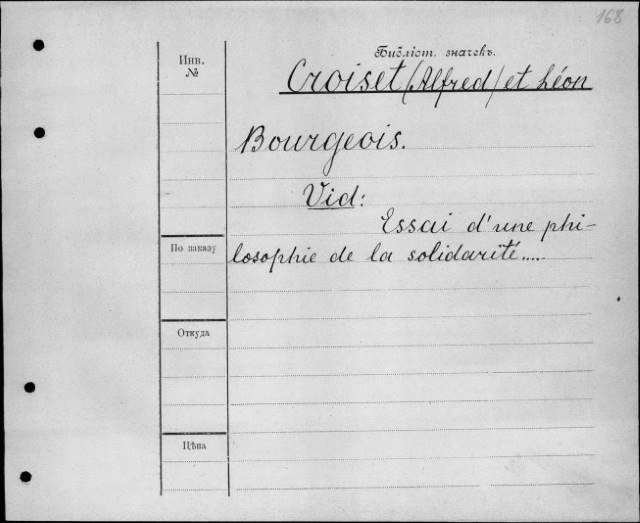 168
Инв.
№
Библіот. значекъ.
Croiset (Alfred) et Léon
Bourgeois.
Vid:
Essai d'une phi-
losophie de la solidarité.....
По заказу
Откуда
Цѣна